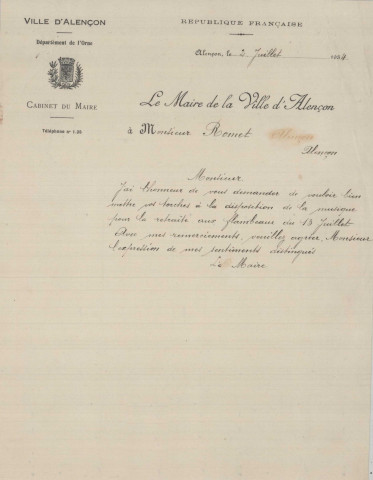 VILLE D'ALENÇON
RÉPUBLIQUE FRANÇAISE
Département de l'Orne
Alençon, le 2 Juillet
CABINET DU MAIRE
Le Maire de la Ville d'Alençon
Téléphone n° 1.26
à Monsieur Romet
Alençon
Monsieur
J'ai l'honneur de vous demander de vouloir bien
mettre vos torches à la disposition de la musique
pour la retraite aux flambeaux du 13 Juillet
Avec mes remerciements, veuillez agréer Monsieur
l'expression de mes sentiments distingués
Le Maire